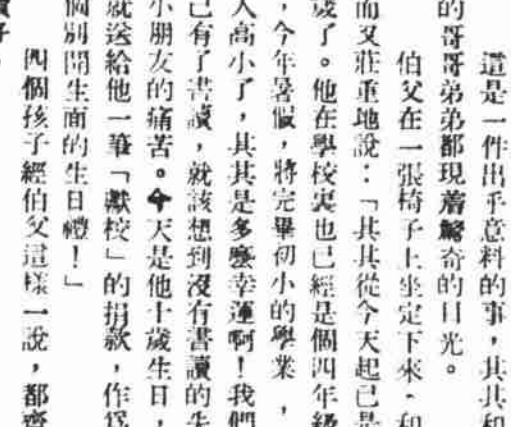 這是一件出乎意料的事，其其和
的哥哥弟弟都現着驚奇的目光。
伯父在一張椅子上坐定下來，和
而又莊重地說：「其其從今天起已是
歲了。他在學校裏也已經是個四年級
，今年暑假，將完畢初小的學業，
入高小了，其其是多麼幸運啊！我們
己有了書讀，就該想到沒有書讀的失
小朋友的痛苦。今天是他十歲生日，
就送給他一筆「獻校」的捐款，作爲
個別開生面的生日禮！」
四個孩子經伯父這樣一說，都齊